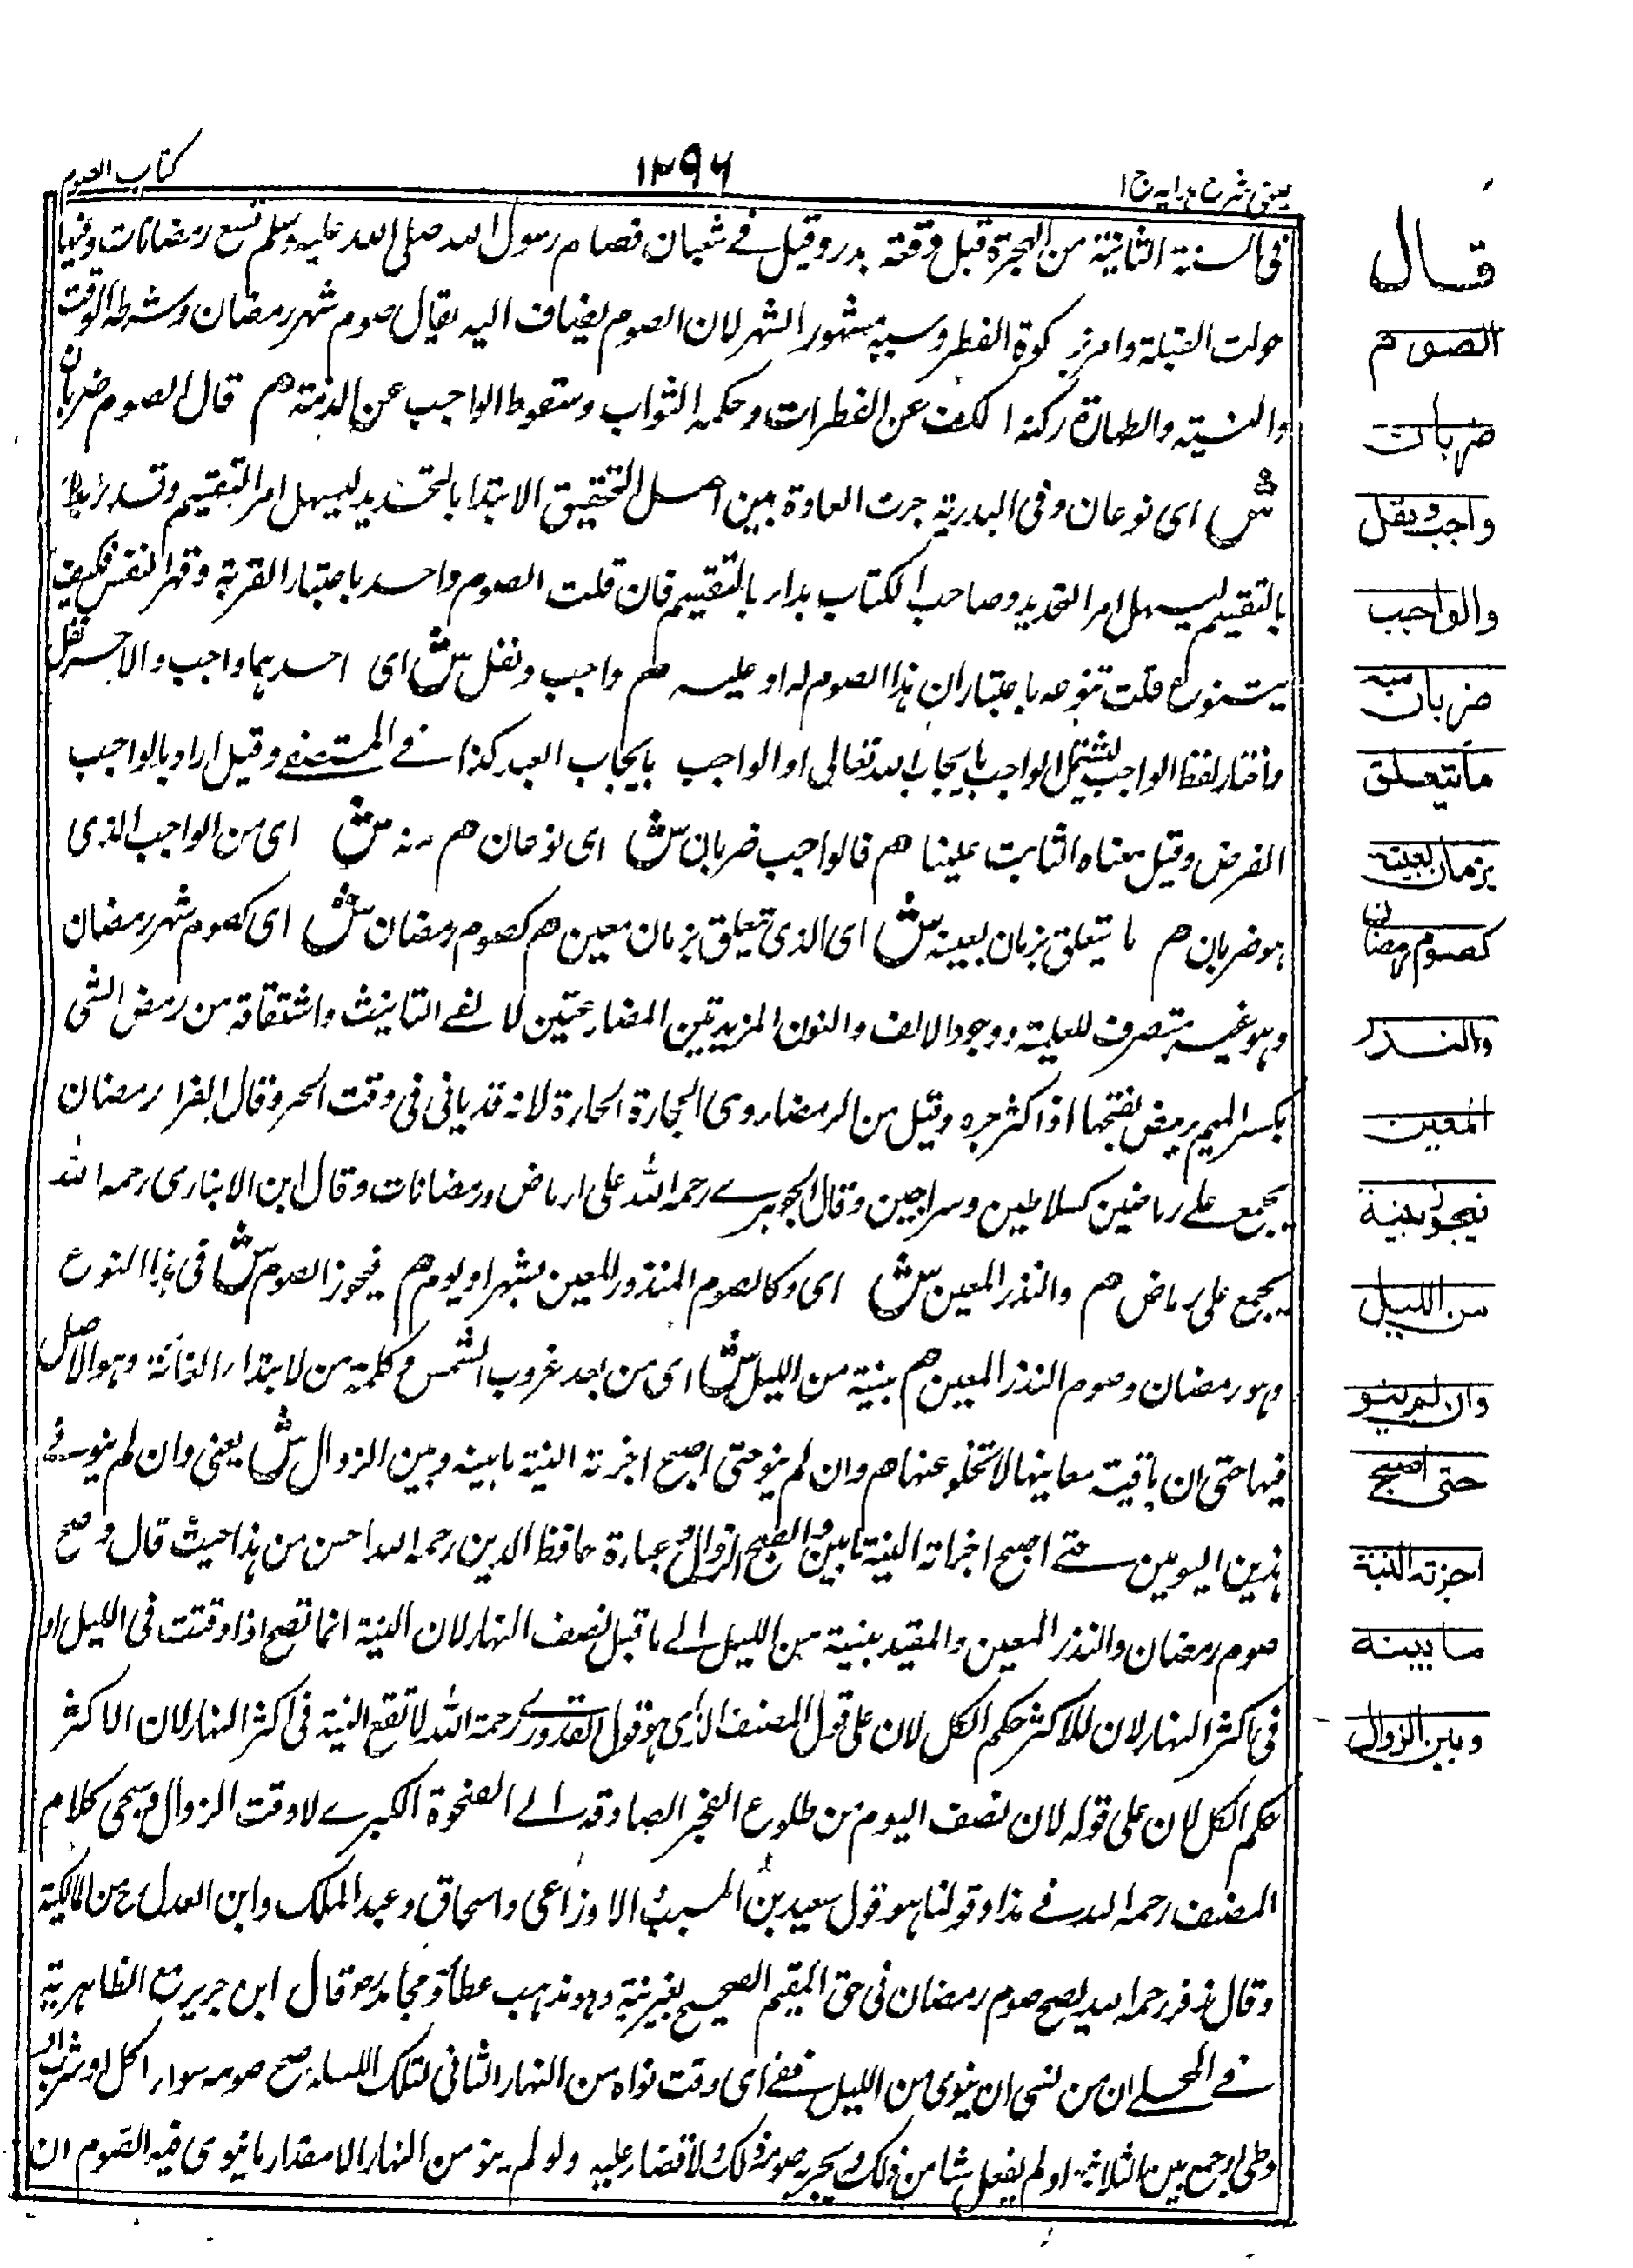 عینی شرح ہدایہ ج ۱
۱۲۹۶
کتاب الصوم
فی السنة الثانية من الهجرة قبل وقعة بدر وقيل في شعبان فصام رسول الله صلى الله عليه وسلم تسع رمضانات وفيها
حولت القبلة وامر بزكوة الفطر وسببه شهود الشهر لان الصوم يضاف اليه يقال صوم شهر رمضان وشرطه الوقت
والنية والطهارة ركنه الكف عن المفطرات وحكمه الثواب وسقوط الواجب عن الذمة هم قال الصوم ضربان
ش اى نوعان وفى البدرية جرت العادة بين اهل التحقيق الابتدا بالتحديد ليسهل امر التقسيم وقد
بالتقسيم ليسهل امر التحديد وصاحب الكتاب بدا بالتقسيم فان قلت الصوم واحد باعتبار القربة وقهر النفس فكيف
يتنوع قلت تنوعه باعتبار ان هذا الصوم له او عليه هم واجب ونفل ش اى احدهما واجب والاخر نفل
واختار لفظ الواجب ليشتمل الواجب بايجاب الله تعالى او الواجب بايجاب العبد كذا في المستصفے وقيل اراد بالواجب
الفرض وقيل معناه الثابت علينا هم فالواجب ضربان ش اى نوعان هم منه ش اى من الواجب الذى
هو ضربان هم ما يتعلق بزمان بعينه ش اى الذى تعلق بزمان معين هم كصوم رمضان ش اى كصوم شهر رمضان
وهو غير متصرف للعلمية ووجود الالف والنون المزيدتين المضارعتين لالفے التانيث واشتقاقه من رمض الشى
بكسر الميم يرمض بفتحها اذا كثر حره وقيل من الرمضاء وهى الحجارة الحارة لانه قد ياتى فى وقت الحر وقال الفراء رمضان
يجمع على رماضين كسلاطين وسراحين وقال الجوهرے رحمه الله على ارماض ورمضانات وقال ابن الانبارى رحمه الله
يجمع على رماض هم والنذر المعين ش اى وكالصوم المنذور المعين بشهر او يوم هم فيجوز الصوم ش فى هذا النوع
وهو رمضان وصوم النذر المعين هم بنية من الليل ش اى من بعد غروب الشمس وكلمة من لابتداء الغاية وهو الاصل
فيها حتى ان باقيت معانيها لا تخلو عنها هم وان لم ينو حتى اصبح اجزته النية ما بينه وبين الزوال ش يعنى وان لم ينو فے
هذين اليومين حتے اصبح اجزاته النية ما بين الصبح والزوال وعبارة حافظ الدين رحمه الله احسن من هذا حيث قال وصح
صوم رمضان والنذر المعين والمقيد بنية من الليل الے ما قبل نصف النهار لان النية انما تصح اذا وقعت فى الليل او
فى اكثر النهار لان للاكثر حكم الكل لان على قول المصنف الذى هو قول القدورے رحمة الله لا تقع النية فى اكثر النهار لان الاكثر
حكم الكل لان على قوله لان نصف اليوم من طلوع الفجر الصادق الے الضحوة الكبرے لا وقت الزوال وسيجى كلام
المصنف رحمه الله فے هذا وقولنا هو قول سعيد بن المسيب والاوزاعى واسحاق وعبد الملك وابن العدل من المالكية
وقال زفر رحمه الله يصح صوم رمضان فى حق المقيم الصحيح بغير نية وهو مذهب عطاء ومجاهد وقال ابن جرير مع الظاهرية
فے المحلے ان من نسى ان ينوى من الليل ففے اى وقت نواه من النهار الثانى لتلك الليلة صح صومه سواء اكل او شرب
وطى او جمع بين الثلاثة او لم يفعل شيا من ذلك ويجزيه صومه ذلك ولا قضاء عليه ولو لم ينو من النهار الا مقدار ما ينوى فيه الصوم ان
قال
الصوم
ضربان
واجب ونفل
والواجب
ضربان منه
ما يتعلق
بزمان بعينه
كصوم رمضان
والنذر
المعين
فيجوز بنية
من الليل
وان لم ينو
حتى اصبح
اجزته النية
ما بينه
وبين الزوال